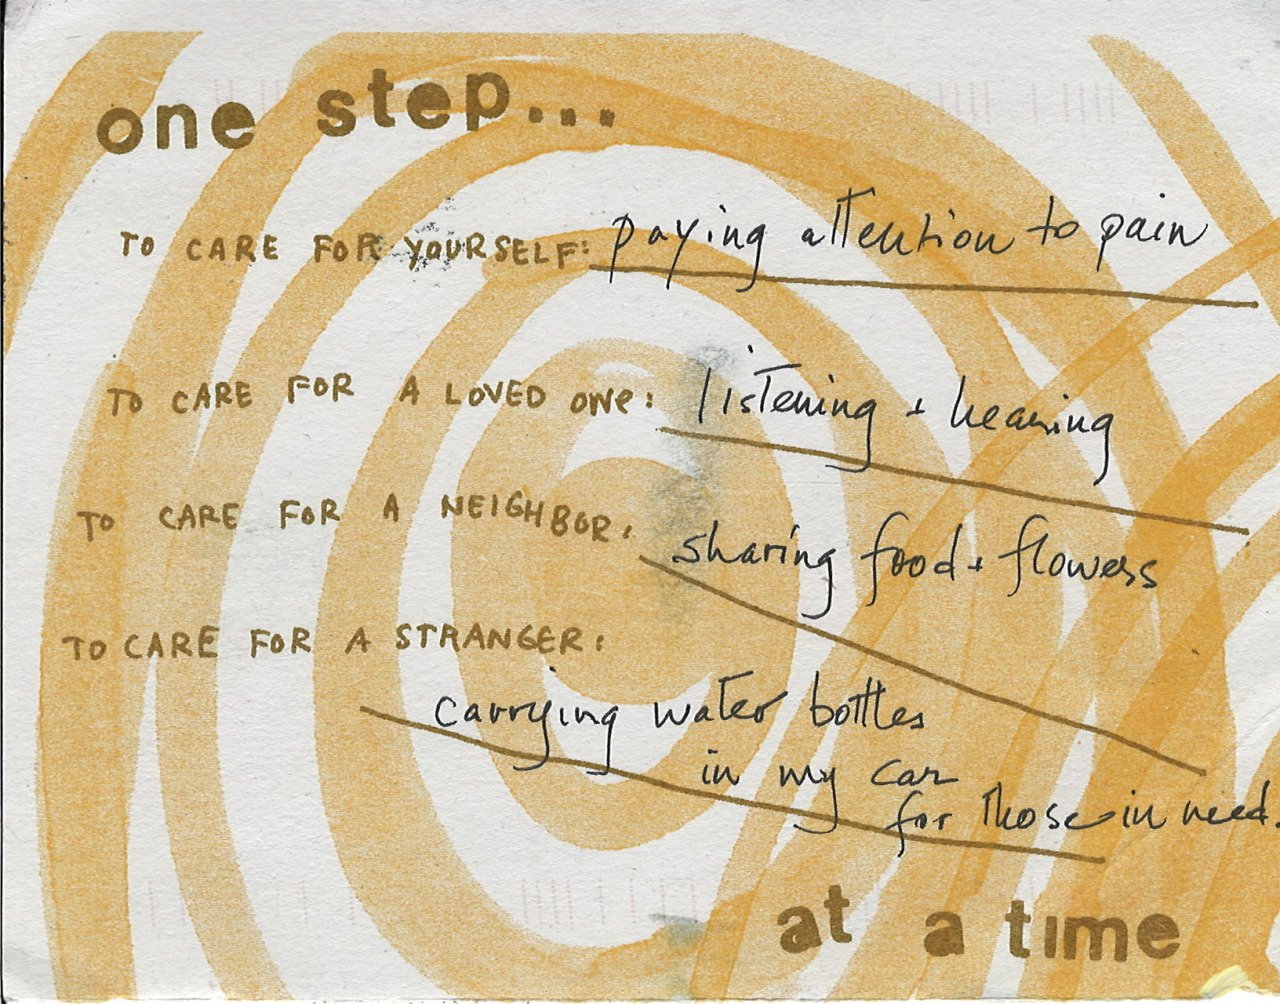 one step...
TO CARE FOR YOURSELF: paying attention to pain
TO CARE FOR A LOVED ONE: listening + hearing
TO CARE FOR A NEIGHBOR: sharing food + flowers
TO CARE FOR A STRANGER:
carrying water bottles
in my car
for those in need.
at a time